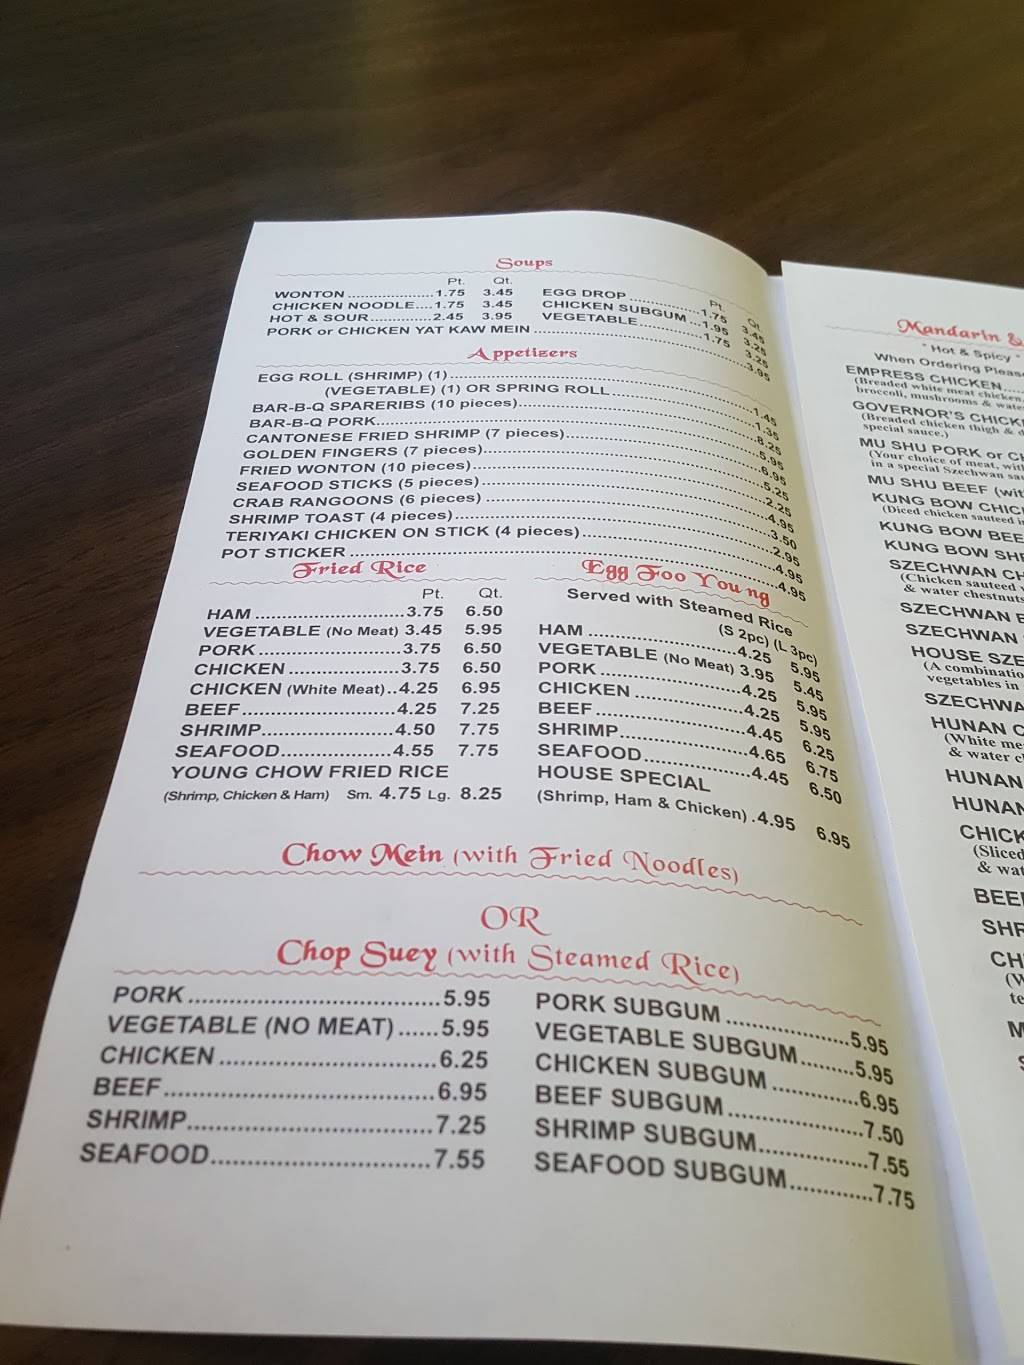 Soups
Pt. Qt.
WONTON 1.75 3.45
CHICKEN NOODLE 1.75 3.45
HOT & SOUR 2.45 3.95
Pt. Qt.
EGG DROP 1.75 3.45
CHICKEN SUBGUM 1.95 3.25
VEGETABLE 1.75 3.25
PORK or CHICKEN YAT KAW MEIN 3.95
Appetizers
EGG ROLL (SHRIMP) (1) 1.45
(VEGETABLE) (1) OR SPRING ROLL 1.35
BAR-B-Q SPARERIBS (10 pieces) 8.25
BAR-B-Q PORK 5.95
CANTONESE FRIED SHRIMP (7 pieces) 6.95
GOLDEN FINGERS (7 pieces) 5.25
FRIED WONTON (10 pieces) 2.25
SEAFOOD STICKS (5 pieces) 4.95
CRAB RANGOONS (6 pieces) 3.50
SHRIMP TOAST (4 pieces) 2.95
TERIYAKI CHICKEN ON STICK (4 pieces) 4.95
POT STICKER 4.95
Fried Rice
Pt. Qt.
HAM 3.75 6.50
VEGETABLE (No Meat) 3.45 5.95
PORK 3.75 6.50
CHICKEN 3.75 6.50
CHICKEN (White Meat) 4.25 6.95
BEEF 4.25 7.25
SHRIMP 4.50 7.75
SEAFOOD 4.55 7.75
YOUNG CHOW FRIED RICE
(Shrimp, Chicken & Ham) Sm. 4.75 Lg. 8.25
Egg Foo Young
Served with Steamed Rice
(S 2pc) (L 3pc)
HAM 4.25 5.95
VEGETABLE (No Meat) 3.95 5.45
PORK 4.25 5.95
CHICKEN 4.25 5.95
BEEF 4.45 6.25
SHRIMP 4.65 6.75
SEAFOOD 4.45 6.50
HOUSE SPECIAL
(Shrimp, Ham & Chicken) 4.95 6.95
Chow Mein (with Fried Noodles)
OR
Chop Suey (with Steamed Rice)
PORK 5.95
VEGETABLE (NO MEAT) 5.95
CHICKEN 6.25
BEEF 6.95
SHRIMP 7.25
SEAFOOD 7.55
PORK SUBGUM 5.95
VEGETABLE SUBGUM 5.95
CHICKEN SUBGUM 6.95
BEEF SUBGUM 7.50
SHRIMP SUBGUM 7.55
SEAFOOD SUBGUM 7.75
Mandarin &
* Hot & Spicy *
When Ordering Pleas
EMPRESS CHICKEN
(Breaded white meat chicken,
broccoli, mushrooms & wate
GOVERNOR'S CHICK
(Breaded chicken thigh & d
special sauce.)
MU SHU PORK or CH
(Your choice of meat, with
in a special Szechwan sau
MU SHU BEEF (wit
KUNG BOW CHIC
(Diced chicken sauteed i
KUNG BOW BEE
KUNG BOW SHR
SZECHWAN CH
(Chicken sauteed
& water chestnuts
SZECHWAN B
SZECHWAN
HOUSE SZE
(A combinatio
vegetables in
SZECHWA
HUNAN C
(White me
& water c
HUNAN
HUNAN
CHICK
(Sliced
& wat
BEEF
SHR
CH
(W
te